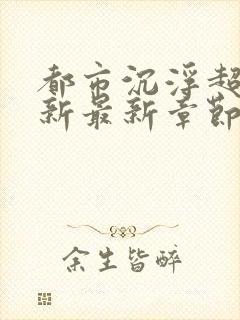 都市沉浮超
新最新章节
余生皆醉